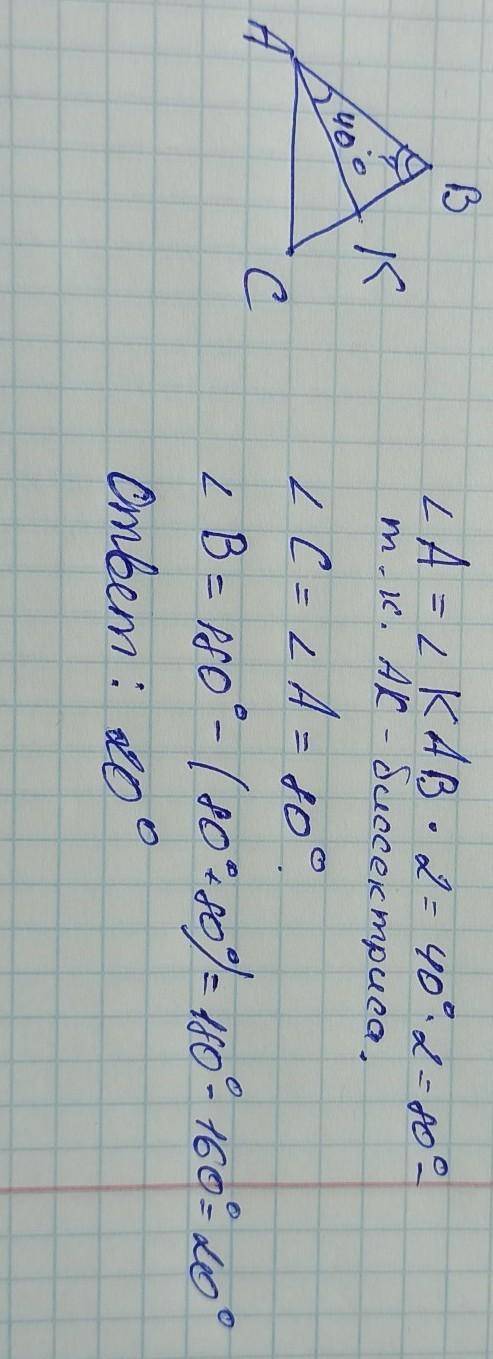 B
A
40°
K
C
∠A = ∠KAB · 2 = 40° · 2 = 80° –
т.к. АК – биссектриса.
∠C = ∠A = 80°.
∠B = 180° – (80° + 80°) = 180° – 160° = 20°
Ответ: 20°